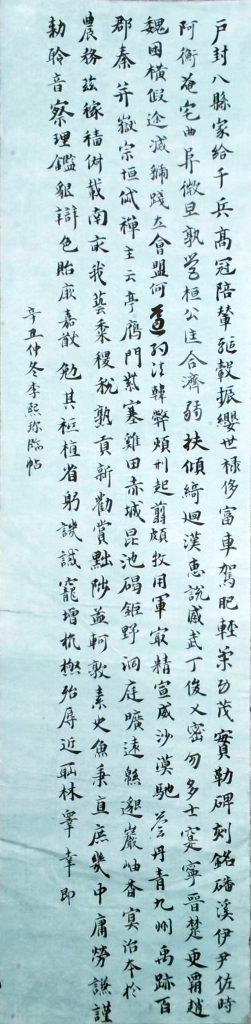 戶封八縣家給千兵高冠陪輦驅轂振纓世祿侈富車駕肥輕策功茂實勒碑刻銘磻溪伊尹佐時
阿衡奄宅曲阜微旦孰營桓公匡合濟弱扶傾綺迴漢惠說感武丁俊乂密勿多士寔寧晉楚更霸趙
魏困橫假途滅虢踐土會盟何遵約法韓弊煩刑起翦頗牧用軍最精宣威沙漠馳譽丹青九州禹跡百
郡秦并嶽宗恒岱禪主云亭鴈門紫塞雞田赤城昆池碣鉅野洞庭曠遠緜邈巖岫杳冥治本於
農務茲稼穡俶載南畝我藝黍稷稅熟貢新勸賞黜陟孟軻敦素史魚秉直庶幾中庸勞謙謹
勅聆音察理鑑貌辯色貽厥嘉猷勉其祗植省躬譏誡寵增抗極殆辱近恥林皋幸即
辛丑仲冬李熙珎臨帖